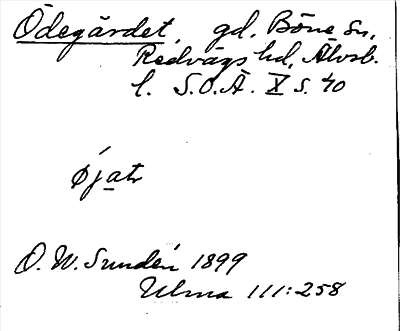 Ödegärdet, gd, Böne sn,
Redvägs hd, Älvsb.
l. S.O.Ä. X s. 40
øjatr
O. W. Sundén 1899
Ulma 111:258